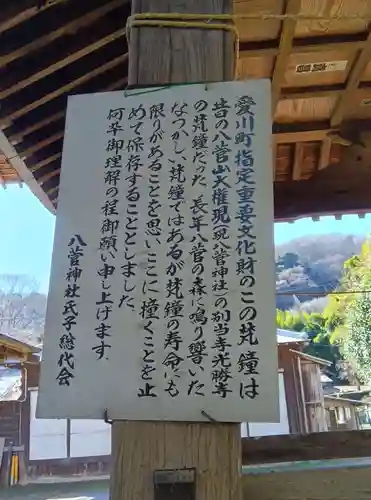 愛川町指定重要文化財のこの梵鐘は
昔の八菅山大権現（現八菅神社）の別当寺光勝寺
の梵鐘だった。長年八菅の森に鳴り響いた
なつかしい梵鐘ではあるが梵鐘の寿命にも
限りがあることを思いここに撞くことを止
めて保存することとしました。
何卒御理解の程御願い申し上げます。
八菅神社氏子総代会